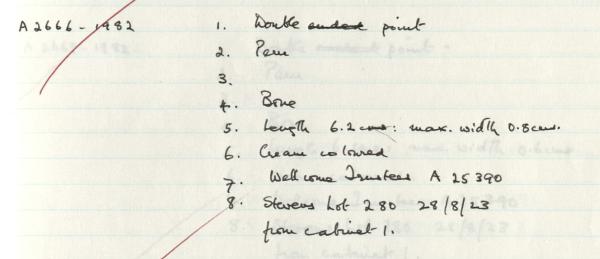 A 2666 - 1982 1. Double point
2. Peru
3.
4. Bone
5. Length 6.2 cms: max. width 0.8 cms.
6. Cream coloured
7. Wellcome Trustees A 25390
8. Stevens Lot 280 28/8/23
from cabinet 1.